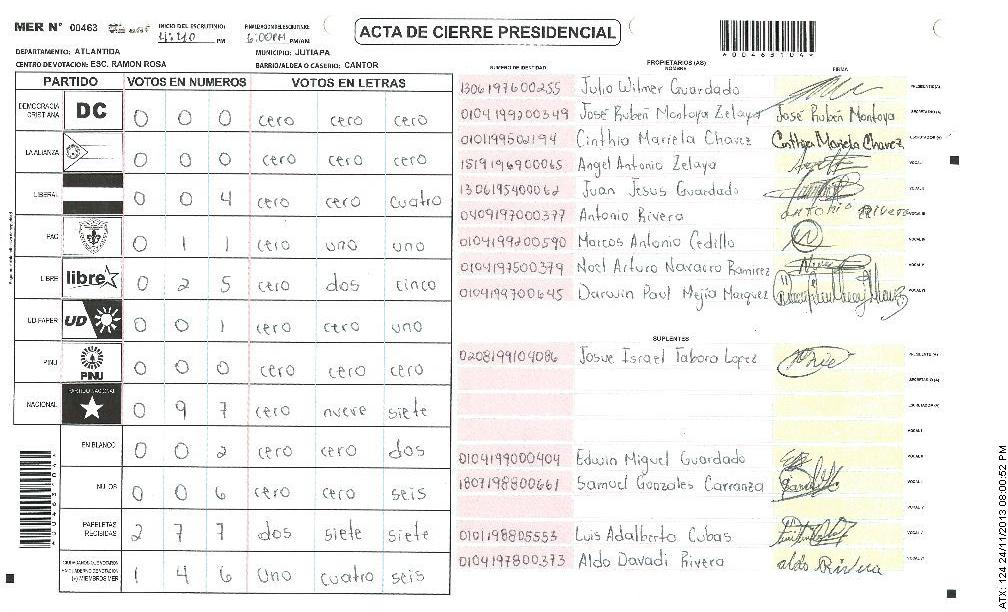 MER N° 00463 INICIO DEL ESCRUTINIO: 4:40 PM FINALIZACION ESCRUTINIO: 6:00PM PM/AM
ACTA DE CIERRE PRESIDENCIAL
DEPARTAMENTO: ATLANTIDA MUNICIPIO: JUTIAPA
CENTRO DE VOTACION: ESC. RAMON ROSA BARRIO/ALDEA O CASERIO: CANTOR
PARTIDO VOTOS EN NUMEROS VOTOS EN LETRAS
DEMOCRACIA CRISTIANA DC 0 0 0 cero cero cero
LA ALIANZA 0 0 0 cero cero cero
LIBERAL 0 0 4 cero cero cuatro
PAC 0 1 1 cero uno uno
LIBRE libre 0 2 5 cero dos cinco
UD-FAPER UD 0 0 1 cero cero uno
PINU PINU 0 0 0 cero cero cero
NACIONAL PARTIDO NACIONAL 0 9 7 cero nueve siete
EN BLANCO 0 0 2 cero cero dos
NULOS 0 0 6 cero cero seis
PAPELETAS RECIBIDAS 2 7 7 dos siete siete
(+) MIEMBROS MER 1 4 6 Uno cuatro seis
PROPIETARIOS (AS)
NUMERO DE IDENTIDAD NOMBRE FIRMA
1306197600255 Julio Wilmer Guardado PRESIDENTE (A)
0104199200349 José Rubén Montoya Zelaya José Rubén Montoya SECRETARIO (A)
0101199502194 Cinthia Mariela Chavez Cinthia Mariela Chavez ESCRUTADOR (A)
1519196900065 Angel Antonio Zelaya VOCAL I
1306195400062 Juan Jesus Guardado VOCAL II
0409197000377 Antonio Rivera ANTONIO RIVERA VOCAL III
0104199200590 Marcos Antonio Cedillo VOCAL IV
0104197500379 Noel Arturo Navarro Ramirez VOCAL V
0104199700645 Darwin Paul Mejia Marquez VOCAL VI
SUPLENTES
0208199104086 Josue Israel Tabora Lopez PRESIDENTE (A)
SECRETARIO (A)
ESCRUTADOR (A)
VOCAL I
0104199000404 Edwin Miguel Guardado VOCAL II
1807198800661 Samuel Gonzales Carranza
0101198805553 Luis Adalberto Cubas
0104197800373 Aldo Davadi Rivera aldo Rivera
A00463104
ATX: 124 24/11/2013 08:00:52 PM